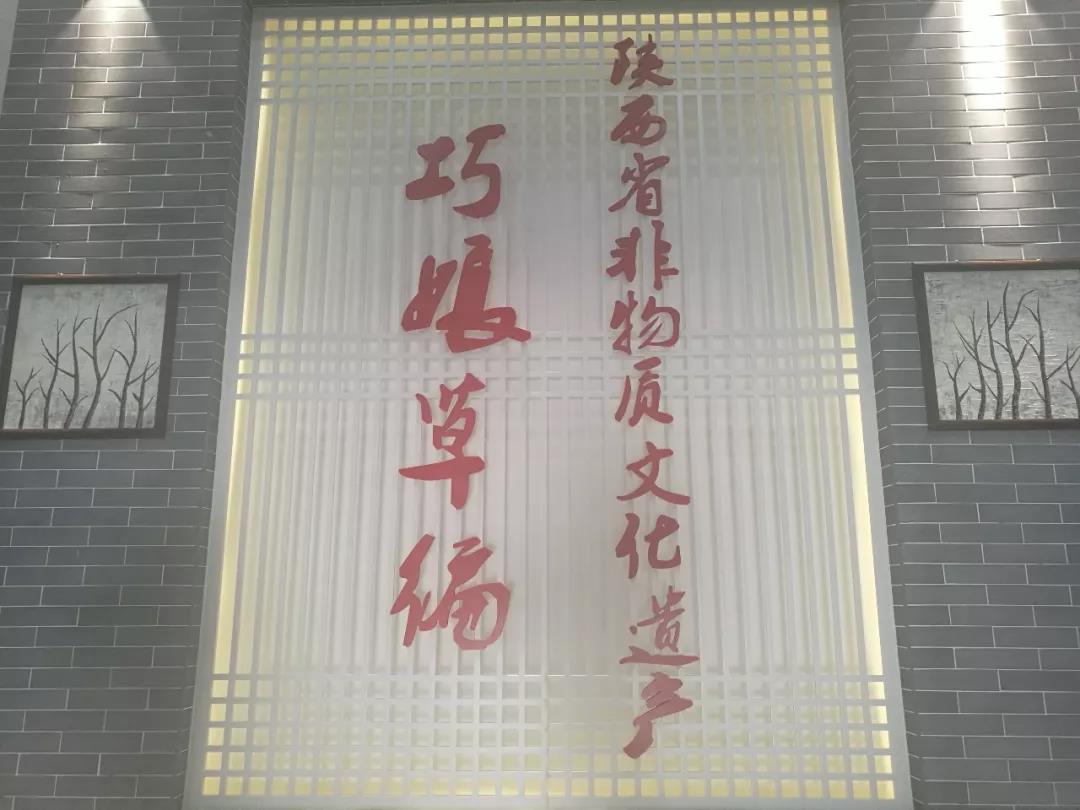 陕西省非物质文化遗产
巧娘草编